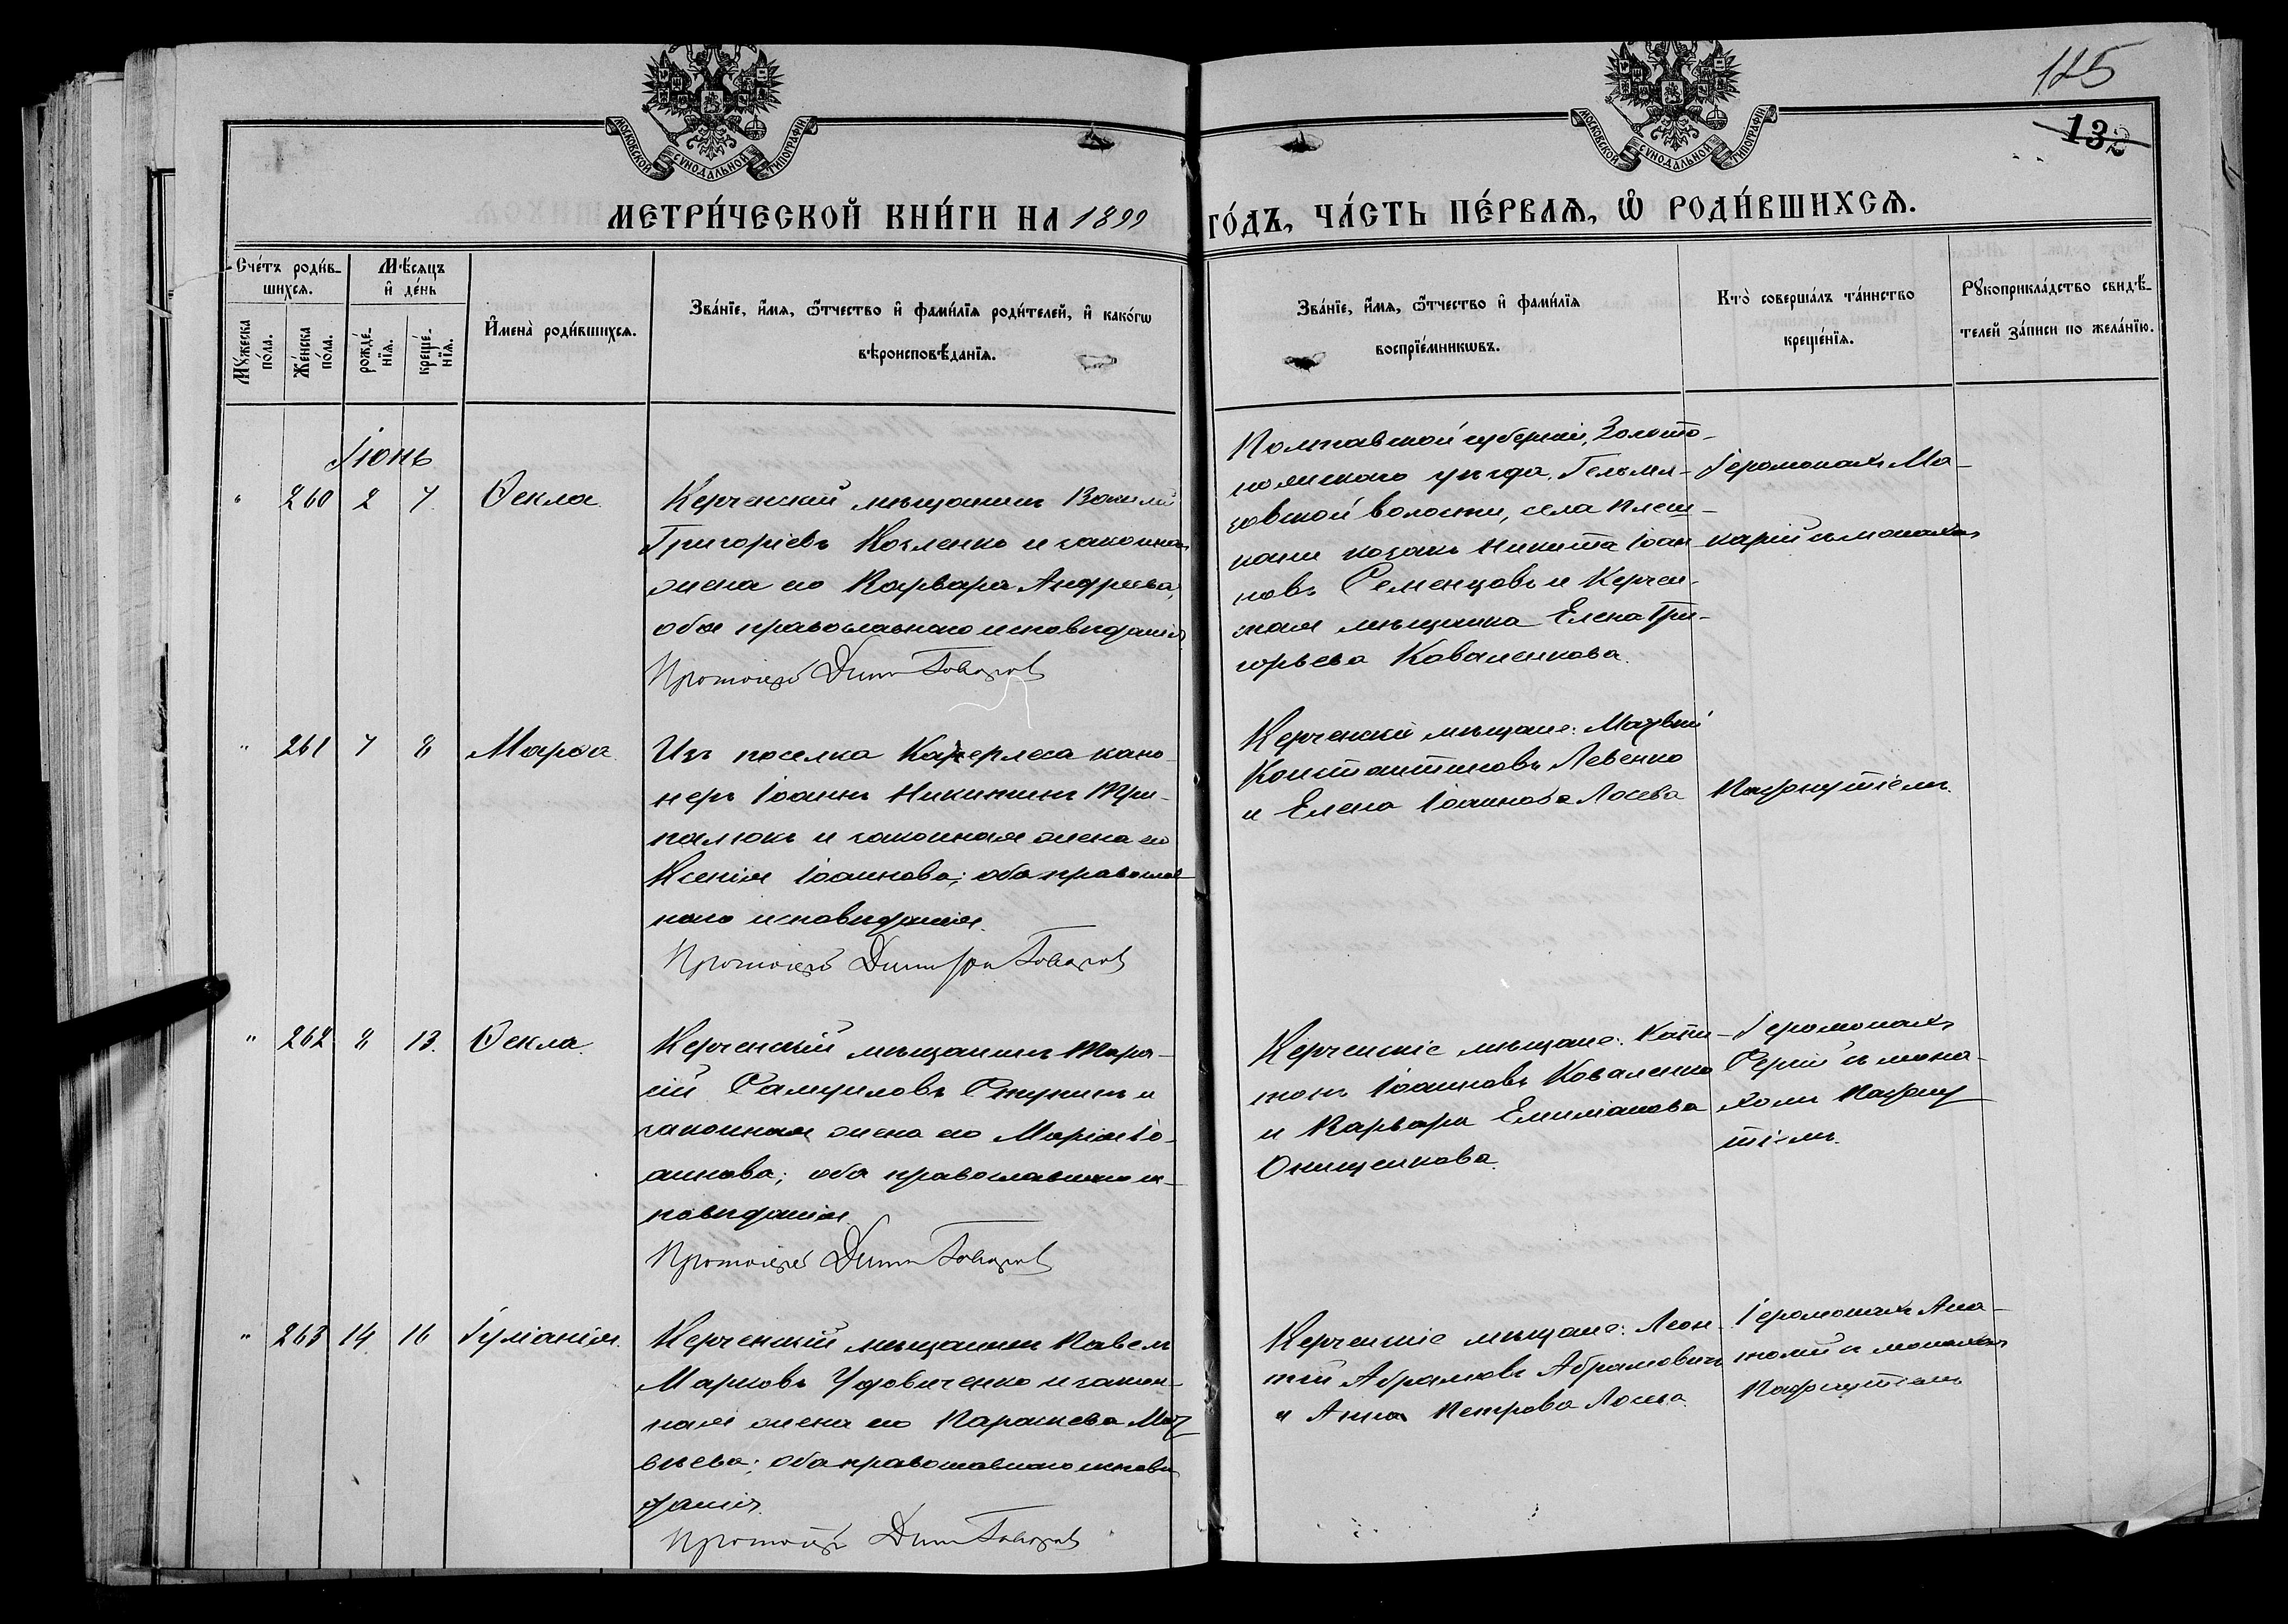 125
132
МОСКОВСКОЙ СѴНОДАЛЬНОЙ ТИПОГРАФІИ
МОСКОВСКОЙ СѴНОДАЛЬНОЙ ТИПОГРАФІИ
МЕТРИ́ЧЕСКОЙ КНИ́ГИ НА 1899 ГО́ДЪ, ЧА́СТЬ ПЕ́РВАѦ, Ѡ҆ РОДИ́ВШИХСѦ.
Сче́тъ роди́в-
шихсѧ.
Мꙋ́жеска
по́ла.
Же́нска
по́ла.
Мѣ́сяцъ
и҆ де́нь
рожде́-
нїѧ.
креще́-
нїѧ.
И҆мена̀ роди́вшихсѧ.
Зва́нїе, и҆́мѧ, ѻ҆́тчество и҆ фами́лїѧ роди́телей, и҆ како́гѡ
вѣроисповѣ́данїѧ.
Зва́нїе, и҆́мѧ, ѻ҆́тчество и҆ фами́лїѧ
воспрїе́мникѡвъ.
Кто̀ соверша́лъ та́инство
креще́нїѧ.
Рꙋкоприкла́дство свидѣ́-
телей за́писи по жела́нїю.
Іюнь
260 2 7. Ѳекла.
Керченскій мѣщанинъ Василій
Григоріевъ Козленко и законная
жена его Варвара Андреева,
оба православнаго исповѣданія
Протоіерей Дим
Полтавской губерніи, Золото-
ношскаго уѣзда, Гельмя-
зовской волости, села Плеш-
кани козакъ Никита Іоан-
новъ Семенцовъ и Керчен-
ская мѣщанка Елена Гри-
горьева Коваленкова.
Іеромонахъ Ма-
карій съ монахомъ
261 7 8 Марѳа.
Изъ поселка Катерлеса кано-
неръ Іоаннъ Никитинъ Три-
палюкъ и законная жена его
Ксенія Іоаннова; оба православ-
наго исповѣданія.
Протоіерей Димитрій
Керченскіе мѣщане: Матвѣй
Константиновъ Левенко
и Елена Іоаннова Лосева
Пафнутіемъ.
262 8 13. Ѳекла.
Керченскій мѣщанинъ Тара-
сій Самуиловъ и
законная жена его Марія Іо-
аннова; оба православнаго ис-
повѣданія.
Протоіерей Дим
Керченскіе мѣщане: Капи-
тонъ Іоанновъ Коваленко
и Варвара Емиліанова
Онищенкова.
Іеромонахъ
Сергій съ мона-
хомъ Пафну
тіемъ.
263 14. 16 Іуліанія.
Керченскій мѣщанинъ Павелъ
Марковъ Удовиченко и закон-
ная жена его Параскева Мат
вѣева; оба православнаго исповѣ
данія.
Протоіерей Дим
Керченскіе мѣщане: Леон-
тій Абрамовъ Абрамовичъ
и Анна Петрова Лосева.
Іеромонахъ Ана-
толій съ монахомъ
Пафнутіемъ